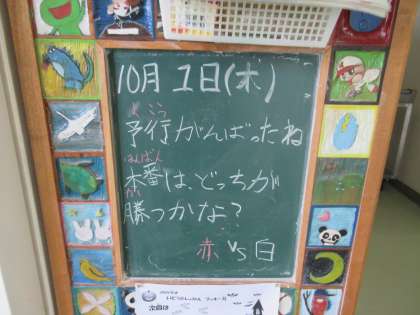 10月1日(木)
よこう
予行がんばったね
ほんばん
本番は、どっちが
か
勝つかな?
赤 vs 白